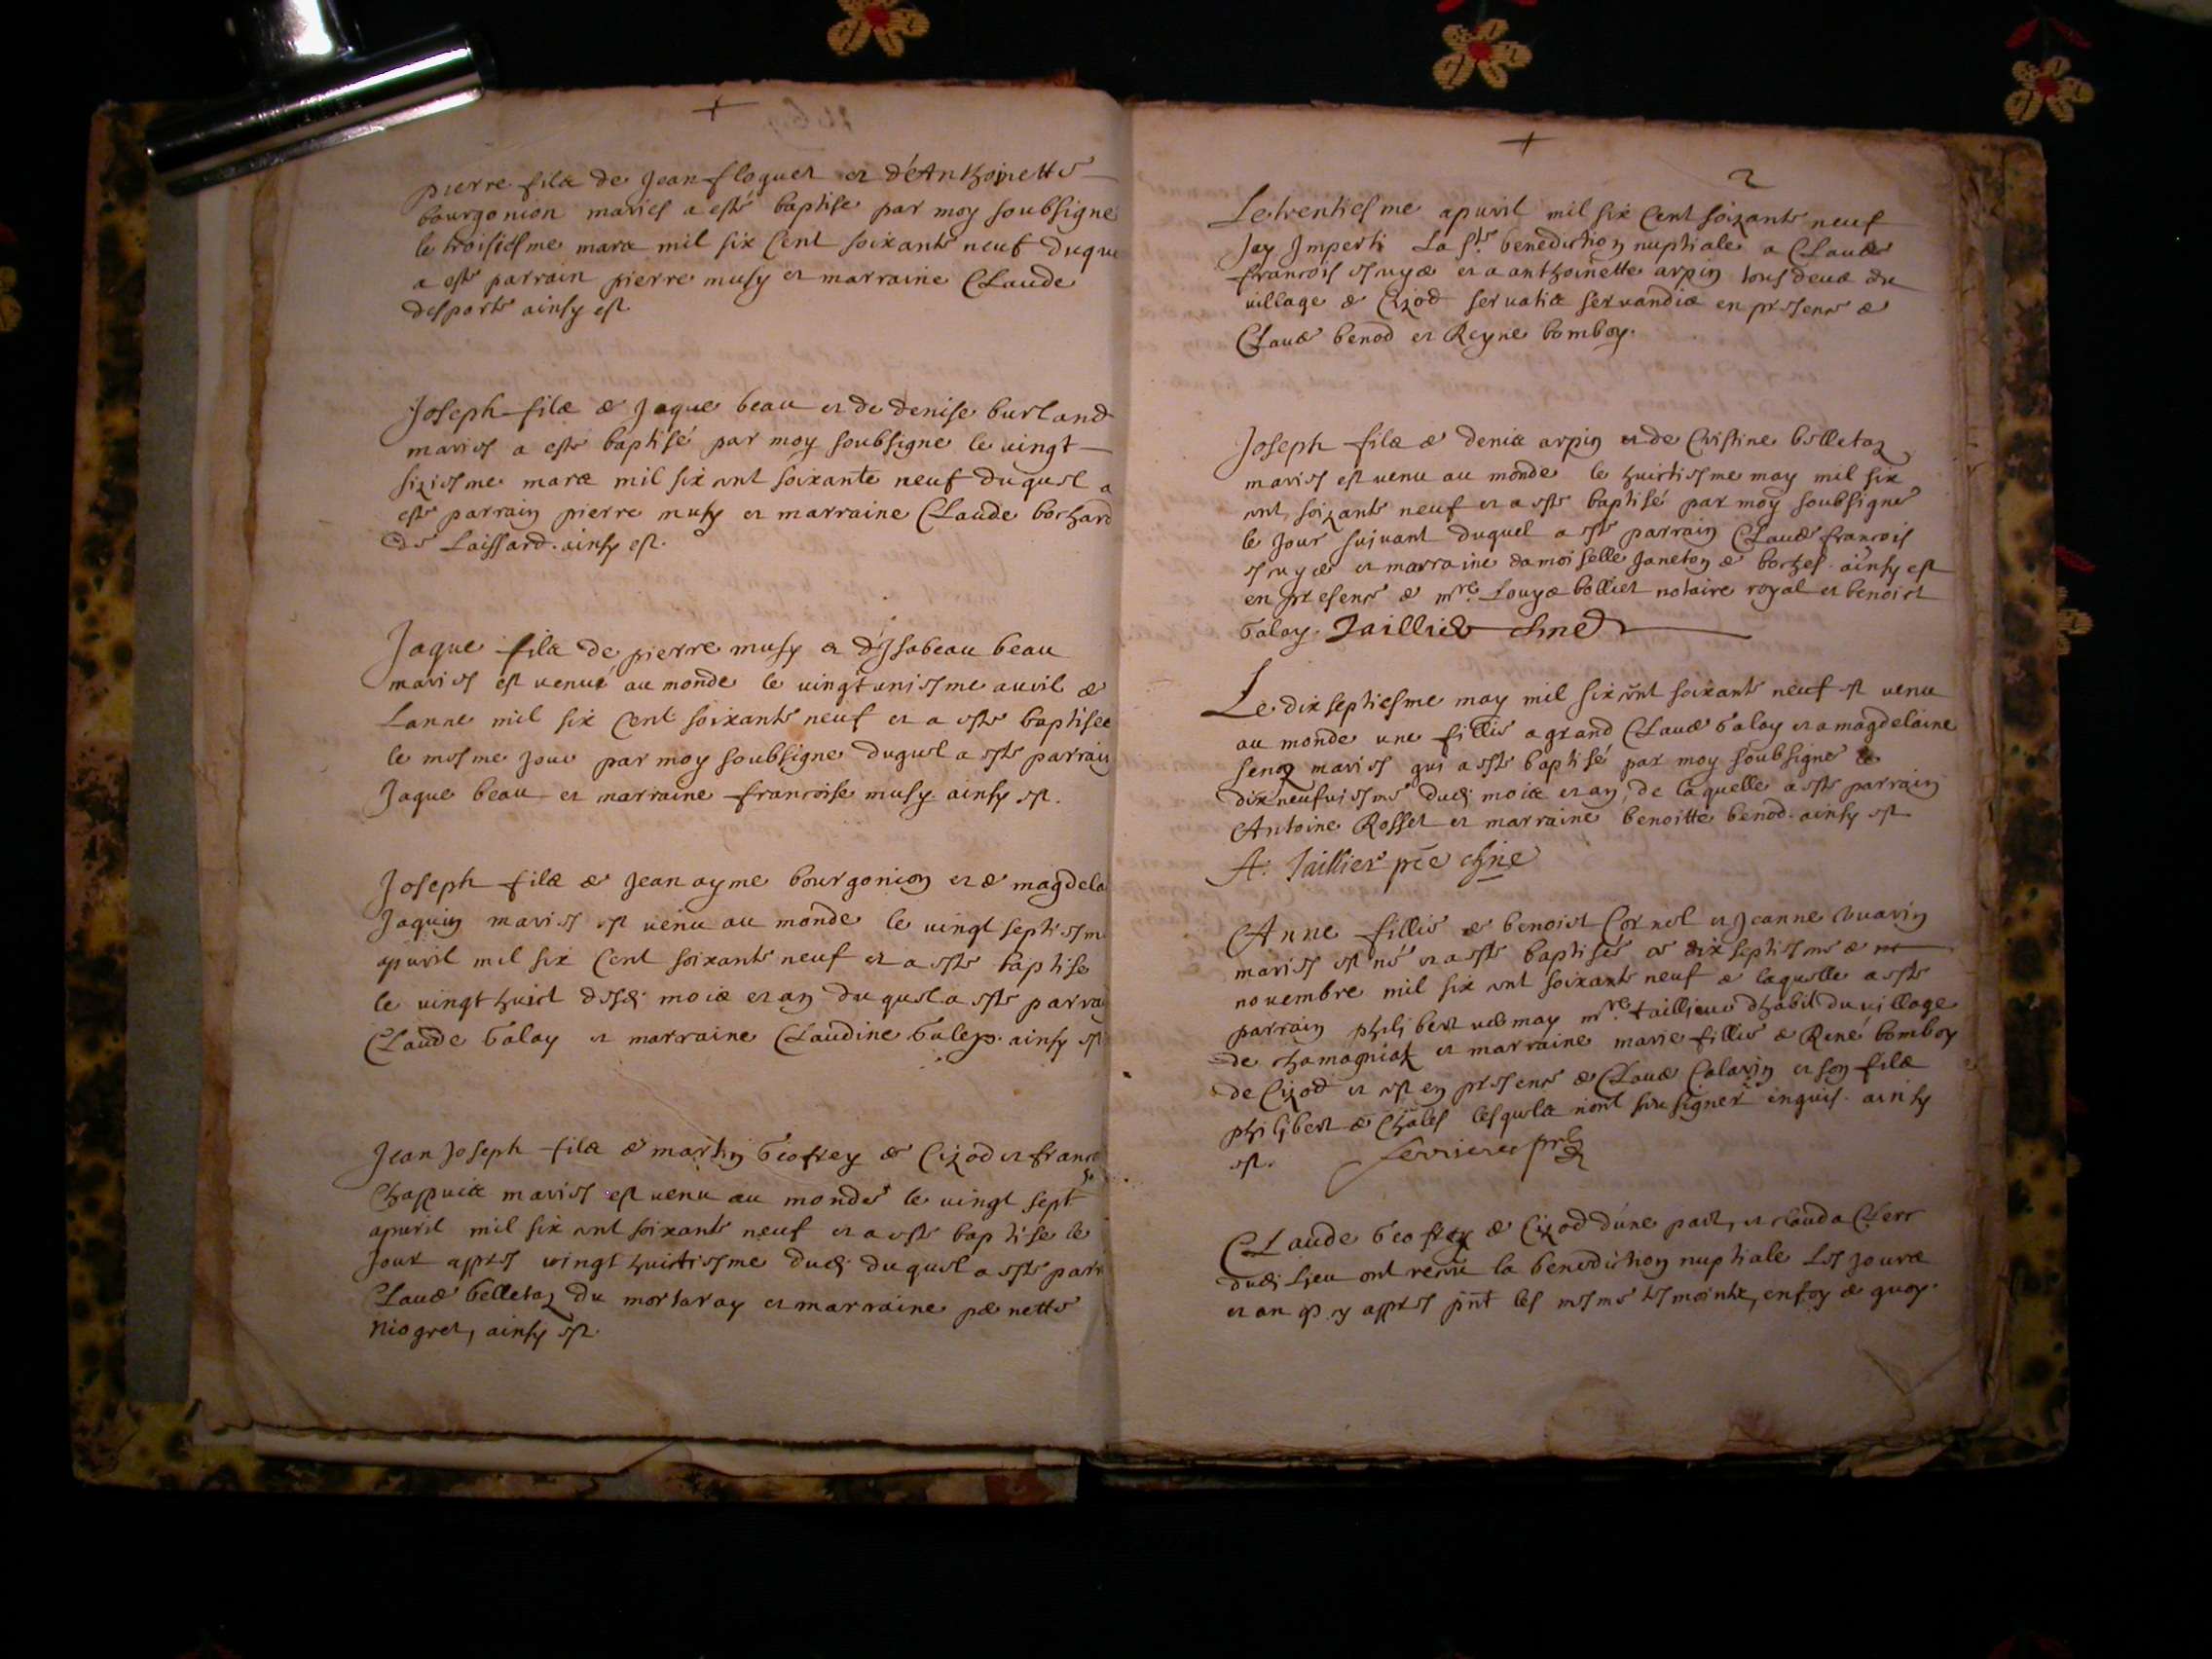 pierre filz de Jean floquet et d'Anthoinette
bourgonion mariés a esté baptise par moy soubsigne
le troisiesme mars mil six Cent soixante neuf duque
a este parrain pierre musy et marraine Claude
desporte ainsy est
Joseph filz de Jaque beau et de denise burland
maries a esté baptisé par moy soubsigne le uingt
siziesme mars mil six cent soixante neuf duquel a
esté parrain pierre musy et marraine Claude bochard
de Laissard. ainsy est.
Jaque filz de pierre musy et d'Jsabeau beau
maries est uenu au monde le uingt uniesme auril de
Lanne mil six Cent soixante neuf et a este baptisee
le mesme jour par moy soubsigne duquel a este parrain
Jaque beau et marraine francoise musy. ainsy est.
Joseph filz de Jean ayme bourgonion et de magdela
Jaquin maries est uenu au monde le uingt septiesm
apuril mil six Cent soixante neuf et a este baptise
le uingt huict desd. mois et an duquel a este parrai
Claude balay et marraine Claudine balep. ainsy est
Jean Joseph filz de martin Geofrey de Cizod et franco
se
Chappuis maries est uenu au monde le uingt sept
apuril mil six cent soixante neuf et a este baptise le
jour appres uingt huictiesme dud. duquel a este parr
Claude belletaz du mortaray et marraine pernette
niogret, ainsy est.
2
Le trentiesme apuril mil six Cent soixante neuf
Jay Jmperti La ste. benediction nuptiale a Claude
francois et a anthoinette arpin tous deux du
uillage de Cizod seruatis seruandis en presence de
Claude benod et Reyne bomboy.
Joseph filz de denis arpin et de Christine belletaz
maries est uenu au monde le huictiesme may mil six
cent soixante neuf et a este baptisé par moy soubsigne
le jour suiuant duquel a este parrain Claude francois
et marraine damoiselle Janeton de boches. ainsy est
en presence de mre. Louys bollier notaire royal et benoict
balay. Jaillier chne
Le dix septiesme may mil six cent soixante neuf est uenu
au monde une fillie a grand Claude balay et a magdelaine
senoz maries qui a este baptisé par moy soubsigne le
dix neufuiesme dud. mois et an, de laquelle a este parrain
Antoine Rosset et marraine benoitte benod. ainsy est
A. Jaillier pre chne
Anne fillie de benoict Cornel et Jeanne uuarin
maries est né et a este baptisée ce dix septiesme de
nouembre mil six cent soixante neuf de laquelle a este
parrain philibert uulemay mre. taillieur dhabit du uillage
de chamagniat et marraine marie fillie de René bomboy
de Cizod et est en presence de Claude Calarin et son filz
philibert de Chales lesquelz n'ont sceu signer enquis. ainsy
est. ferrieres
Claude Geofrey de Cizod d'une part, et Clauda Clerc
dud. Lieu ont receu la benediction nuptiale les jours
et an cy appres pnt les mesme tesmointz, en foy de quoy.